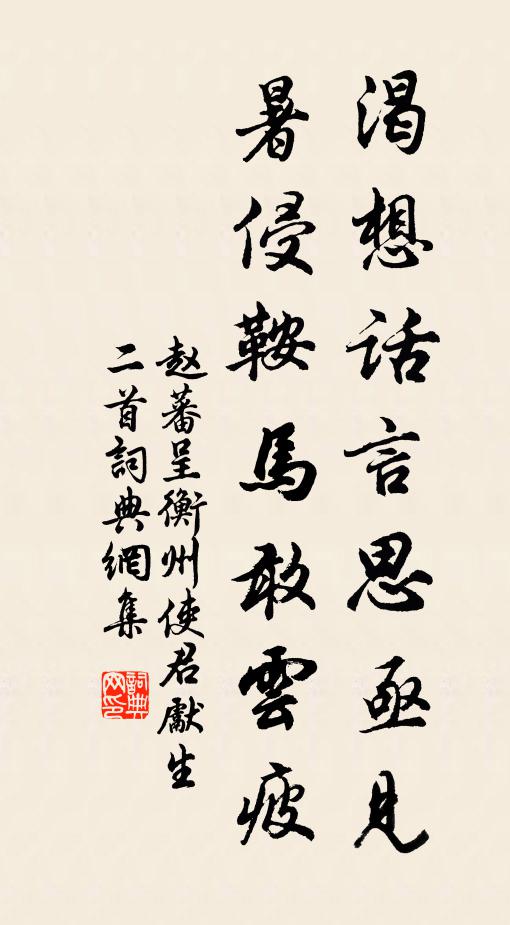 渴想話言思亟見
暑侵鞍馬敢雲疲
赵蕃呈衡州使君獻生
二首詞典網集
詞典網印